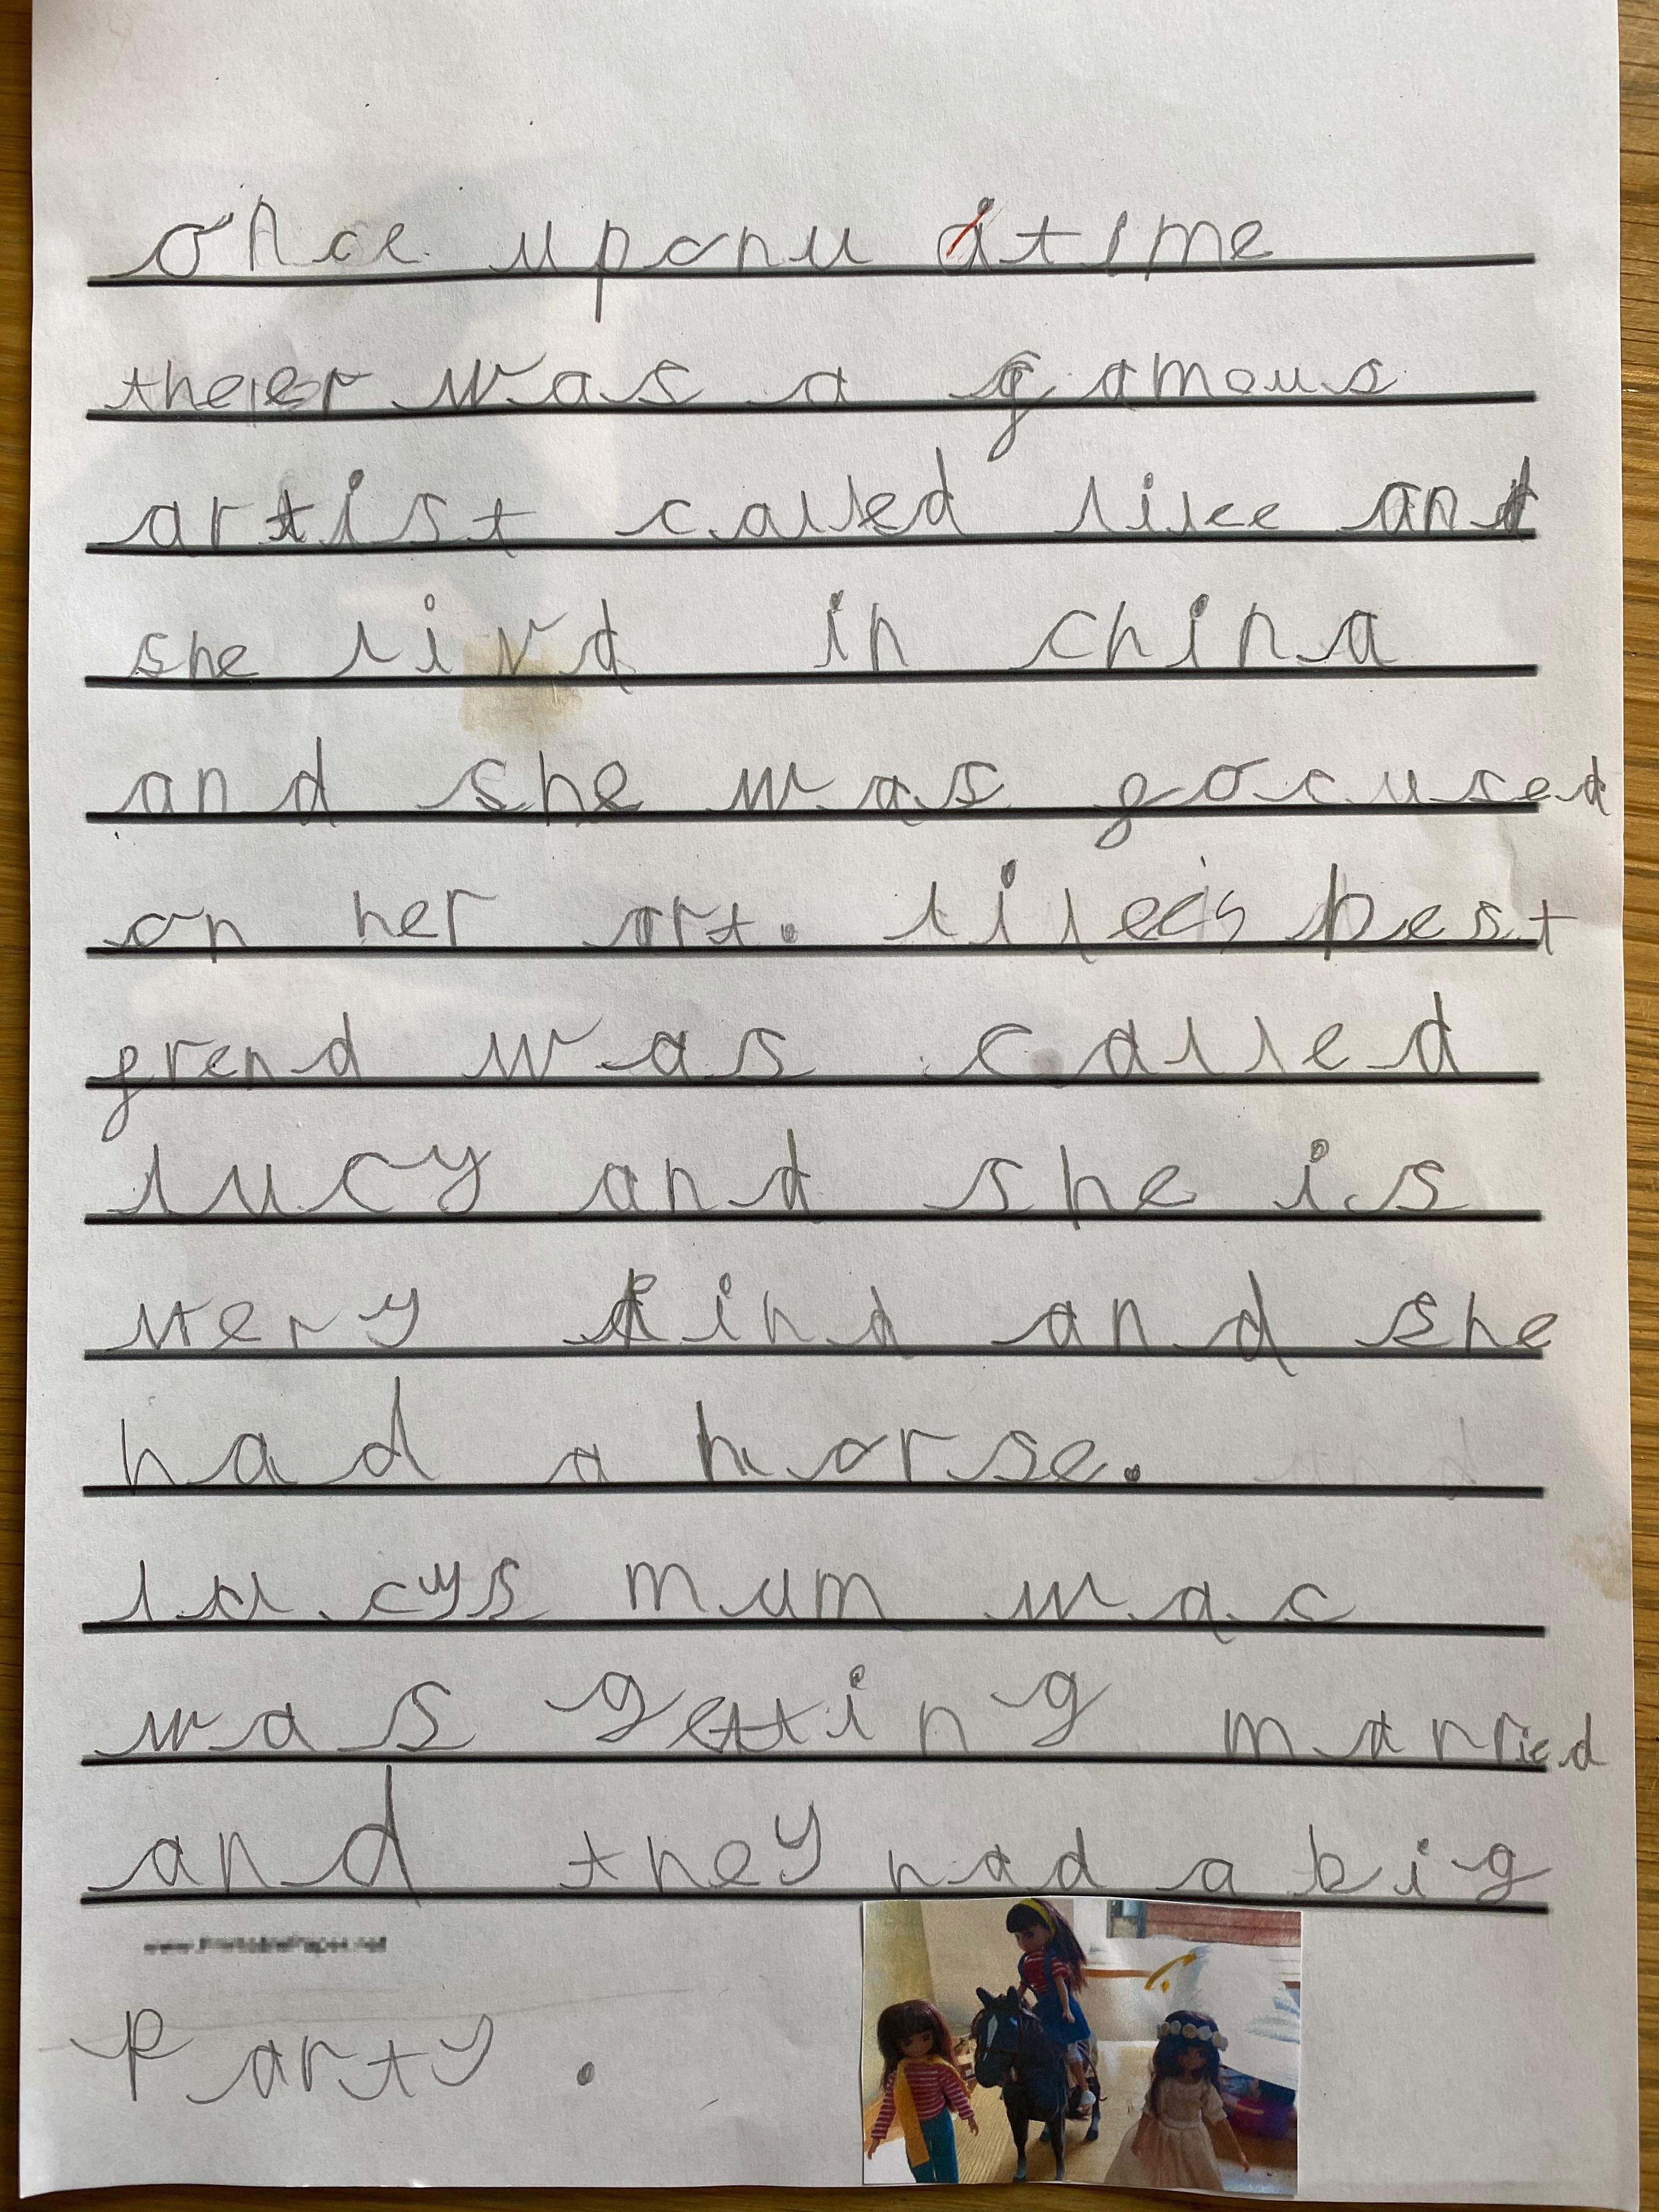 once uponu a time
theier was a famous
artist called lilee and
she livd in china
and she was focused
on her art. lilee's best
frend was called
lucy and she is
very kind and she
had a horse.
lucys mum was
was getting married
and they had a big
www.PrintablePaper.net
Party.